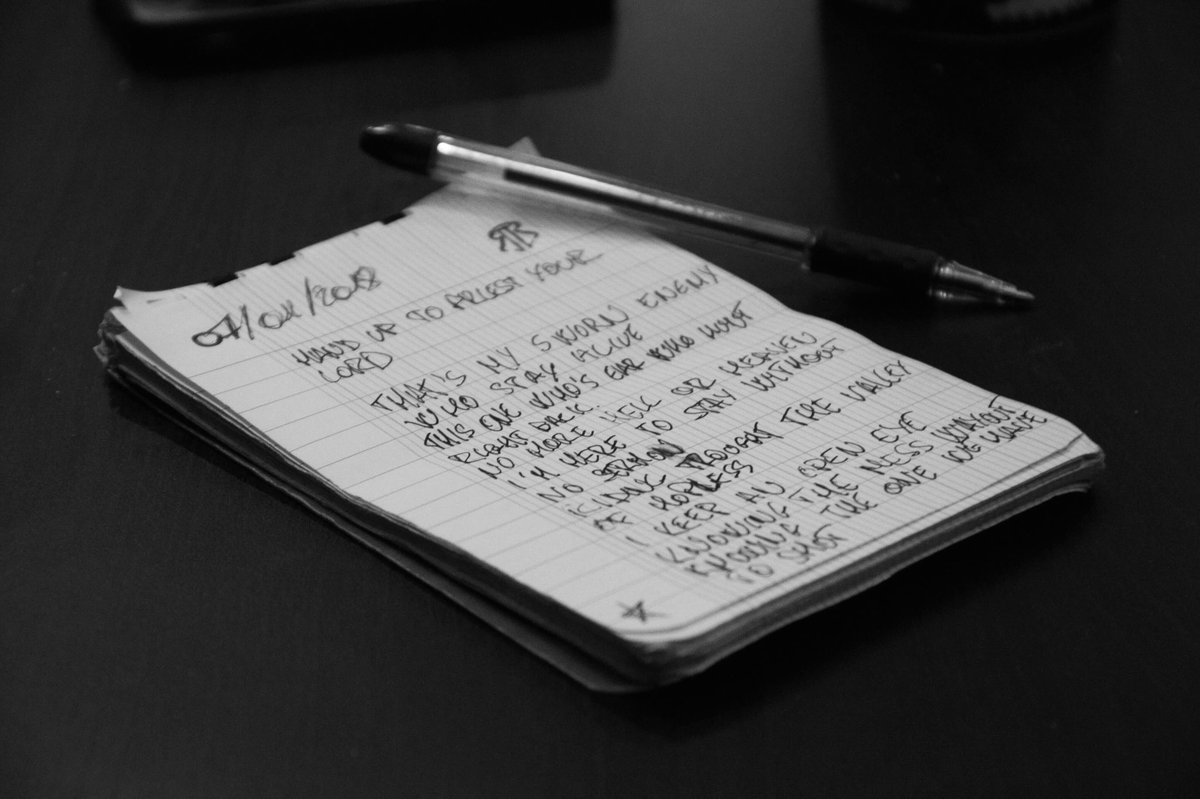 07/04/2018
HAND UP TO ARREST YOUR
LORD
THAT'S MY SWORN ENEMY
WHO STAY ALIVE
THIS ONE WHO'S WHO MOST
RIGHT BACK..
NO MORE HELL OR HEAVEN
I'M HERE TO STAY WITHOUT
NO SERMON
THE VALLEY
OF HOPLESS
I KEEP AN OPEN EYE
KNOWING THE MESS WITHOUT
THE ONE WE HAVE
TO SHOT